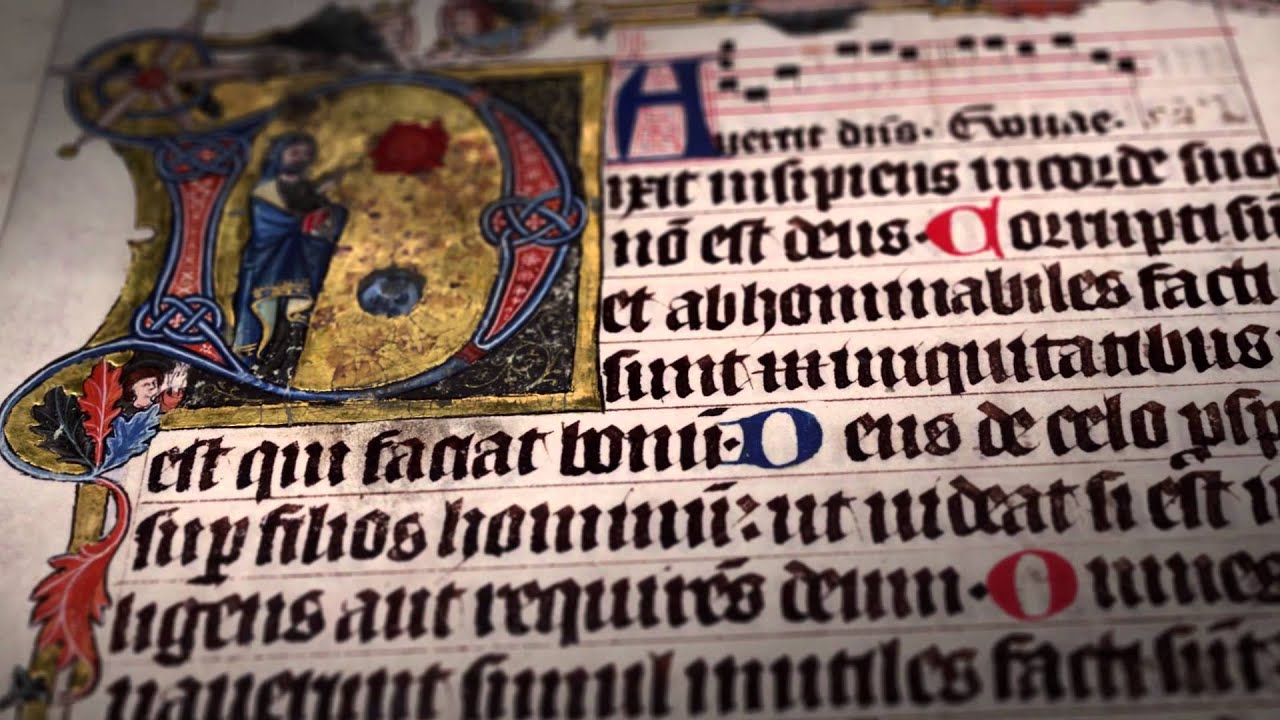 Auertit dn̄s. Euouae.
Dixit insipiens in corde suo
nō est deus. Corrupti sū
et abhominabiles facti
sunt in iniquitatibus
est qui faciat bonū. Deus de celo ꝓsp
suꝑ filios hominū: ut uideat si est
ligens aut requirēs deum. Omnes
nauerunt simul inutiles facti sūt